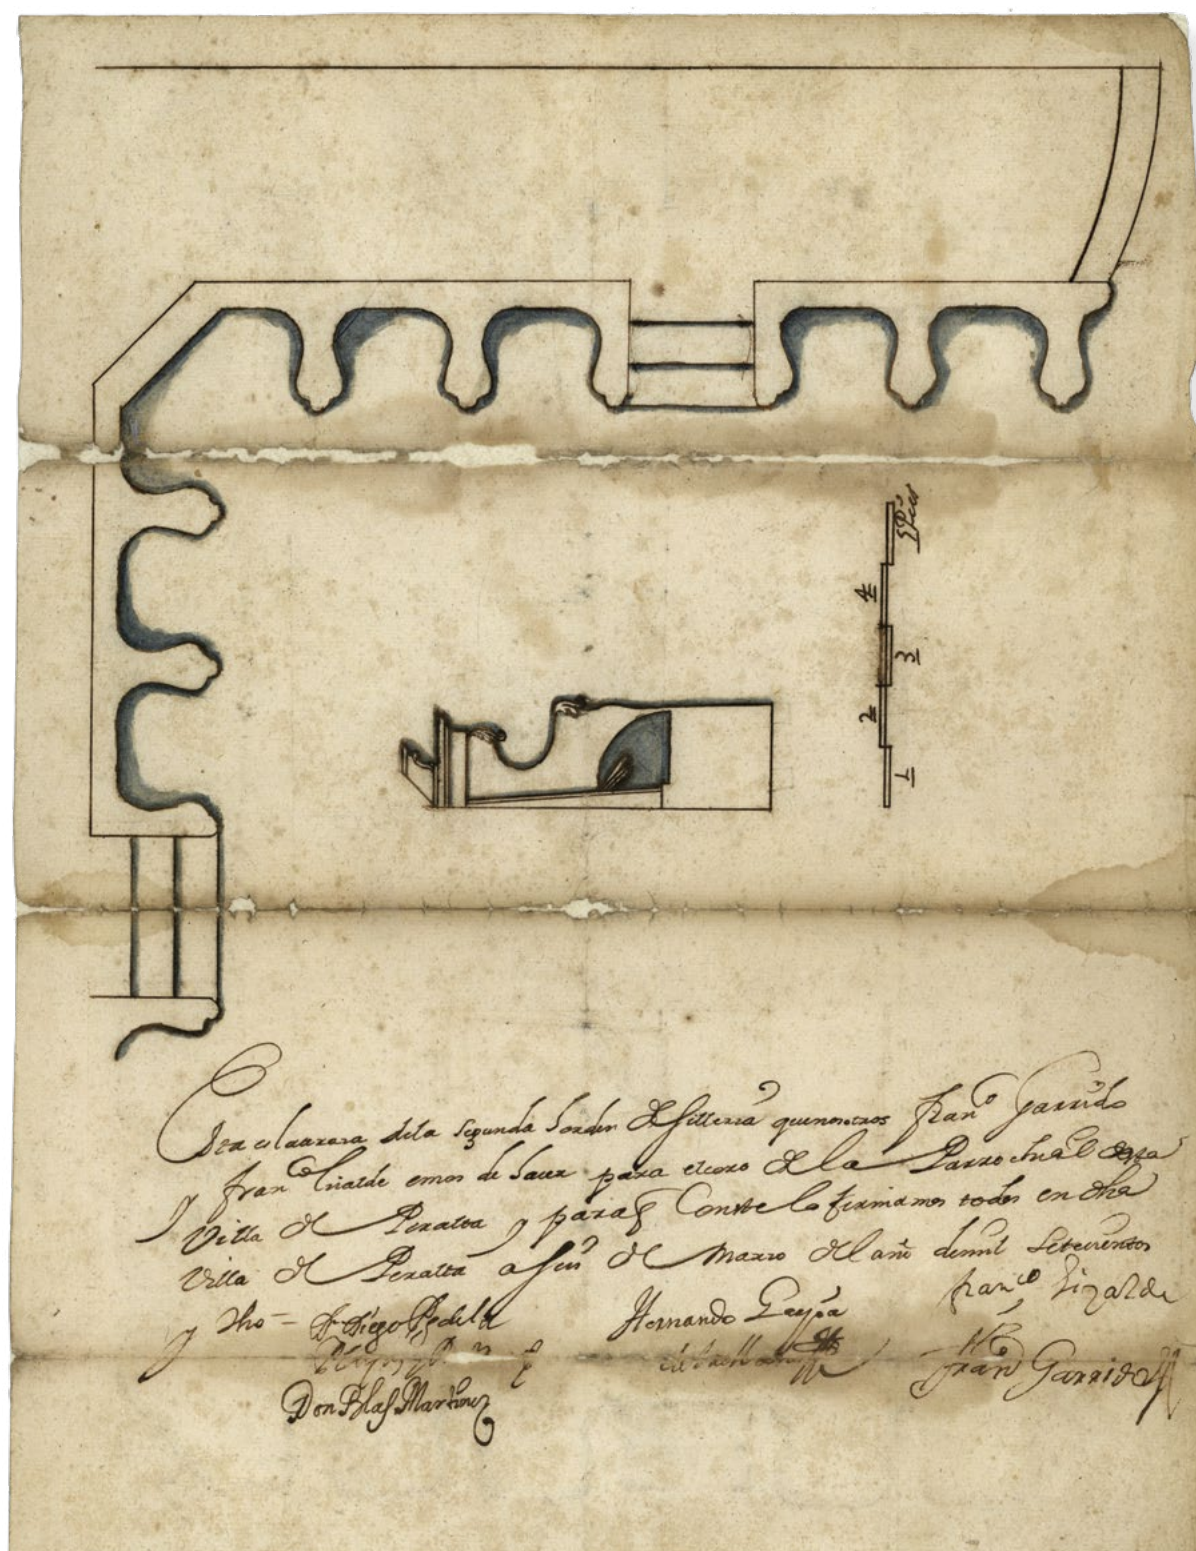 5 Pies
4
3
2
1
Esta es la traza dela segunda horden de silleria que nosotros franco Garrido
y franco lizalde emos de hacer para el coro de la Parrochial desta
Villa de Peralta y para q Conste lo firmamos todos en dha
Villa de Peralta a seis de Marzo del año de mil Setecientos
y Dn Diego
Hernando
franco Lizalde
franco Garrido
Don Blas Martinez